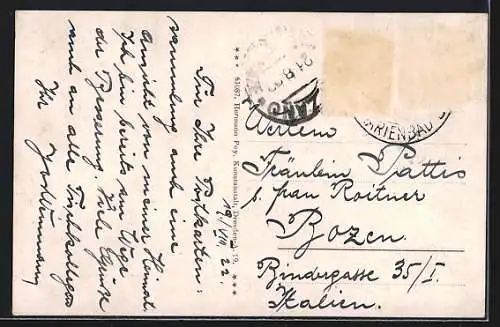 19/VIII. 22.
Für Ihre Postkarten-
sammlung auch eine
Ansicht von meiner Heimat.
Ich bin bereits am Wege
der Besserung. Viele Grüsse
und an alle Tischkollegen
Ihr
*** 84087. Hermann Poy, Kunstanstalt, Dresden-A. 19. ***
21.8.22
MARIENBAD
Werten
Fräulein Pattis
b. Frau Roitner
Bozen.
Bindergasse 35/I.
Italien.